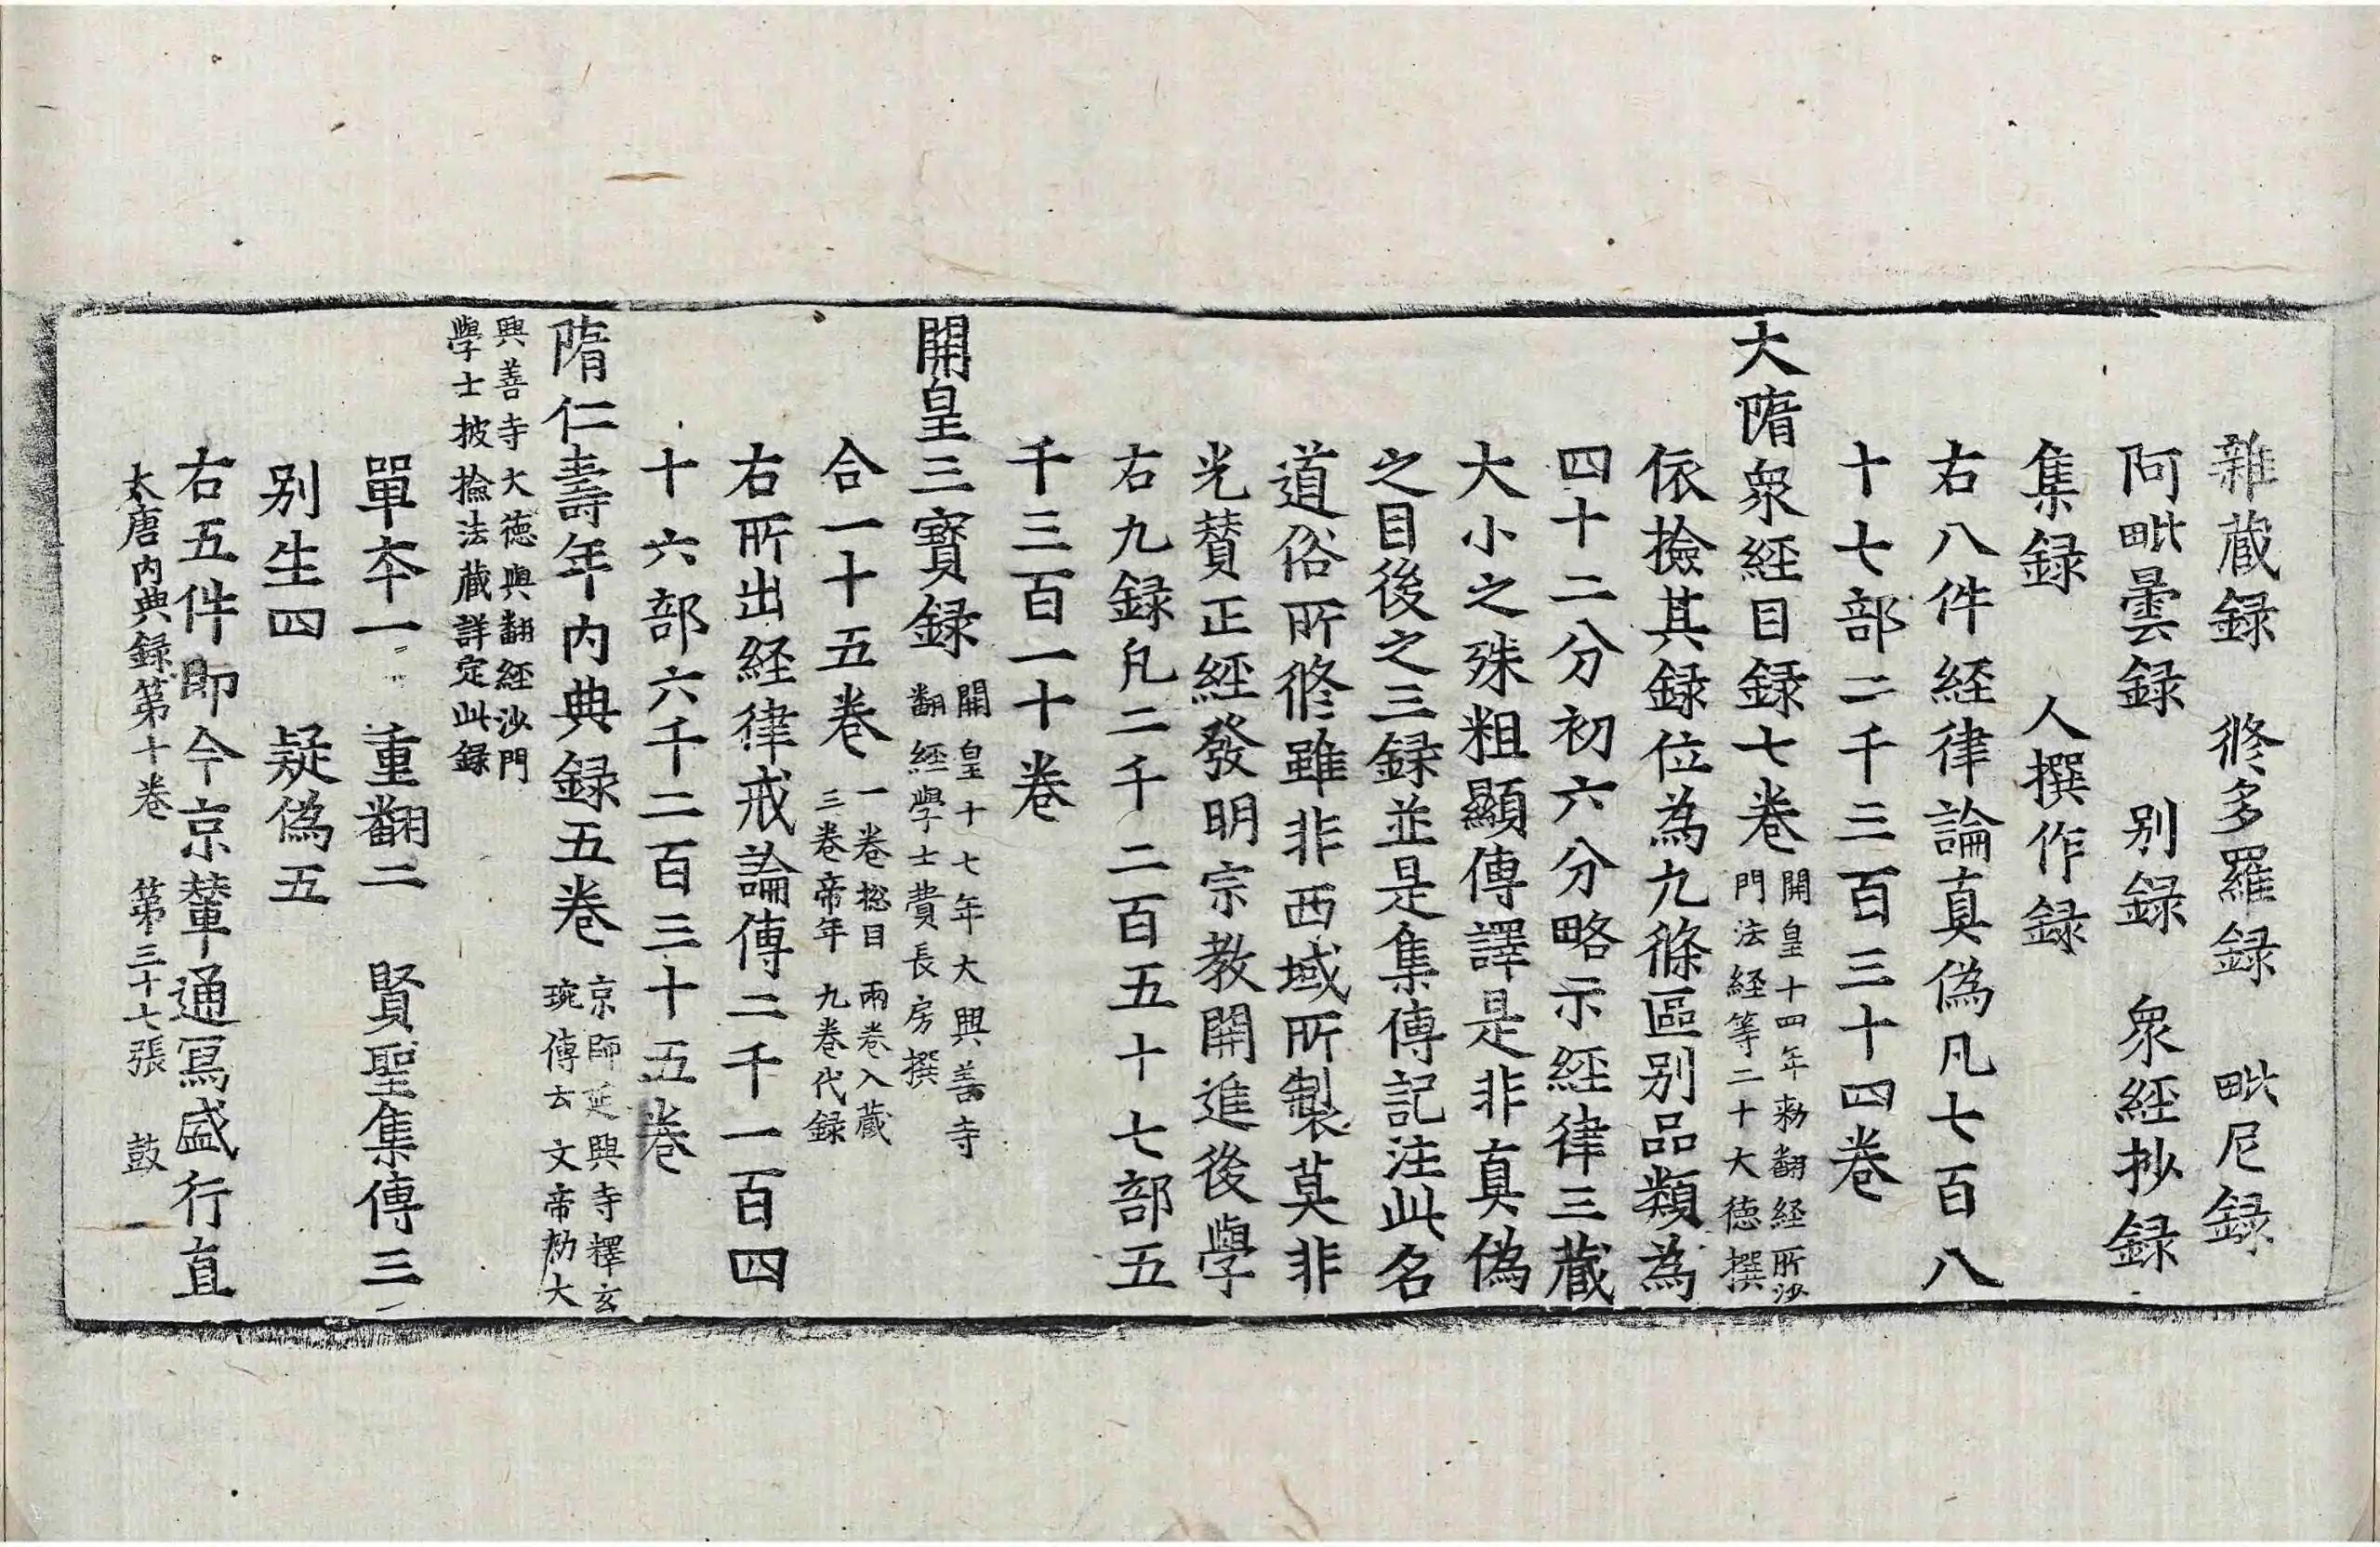 雜蔵録　修多羅録　毗尼録
阿毗曇録　别録　衆經抄録
集録　人撰作録
右八件経律論真偽凡七百八
十七部二千三百三十四卷
大隋衆經目録七卷
開皇十四年勑翻経所沙
門法経等二十大徳撰
依撿其録位為九條區别品類為
四十二分初六分略示經律三蔵
大小之殊粗顯傳譯是非真偽
之目後之三録並是集傳記注此名
道俗所修雖非西域所製莫非
光賛正經發明宗教開進後學
右九録凡二千二百五十七部五
千三百一十卷
開皇三寶録
開皇十七年大興善寺
翻經學士費長房撰
合一十五卷
一卷捴目　兩卷入蔵
三卷帝年　九卷代録
右所出経律戒論傳二千一百四
十六部六千二百三十五卷
隋仁壽年内典録五卷
京師延興寺釋玄
琬傳云文帝勑大
興善寺大徳與翻經沙門
學士披撿法蔵詳定此録
單夲一　重翻二　賢聖集傳三
别生四　疑偽五
右五件即今京輦通冩盛行直
大唐内典録第十卷　第三十七張　鼓